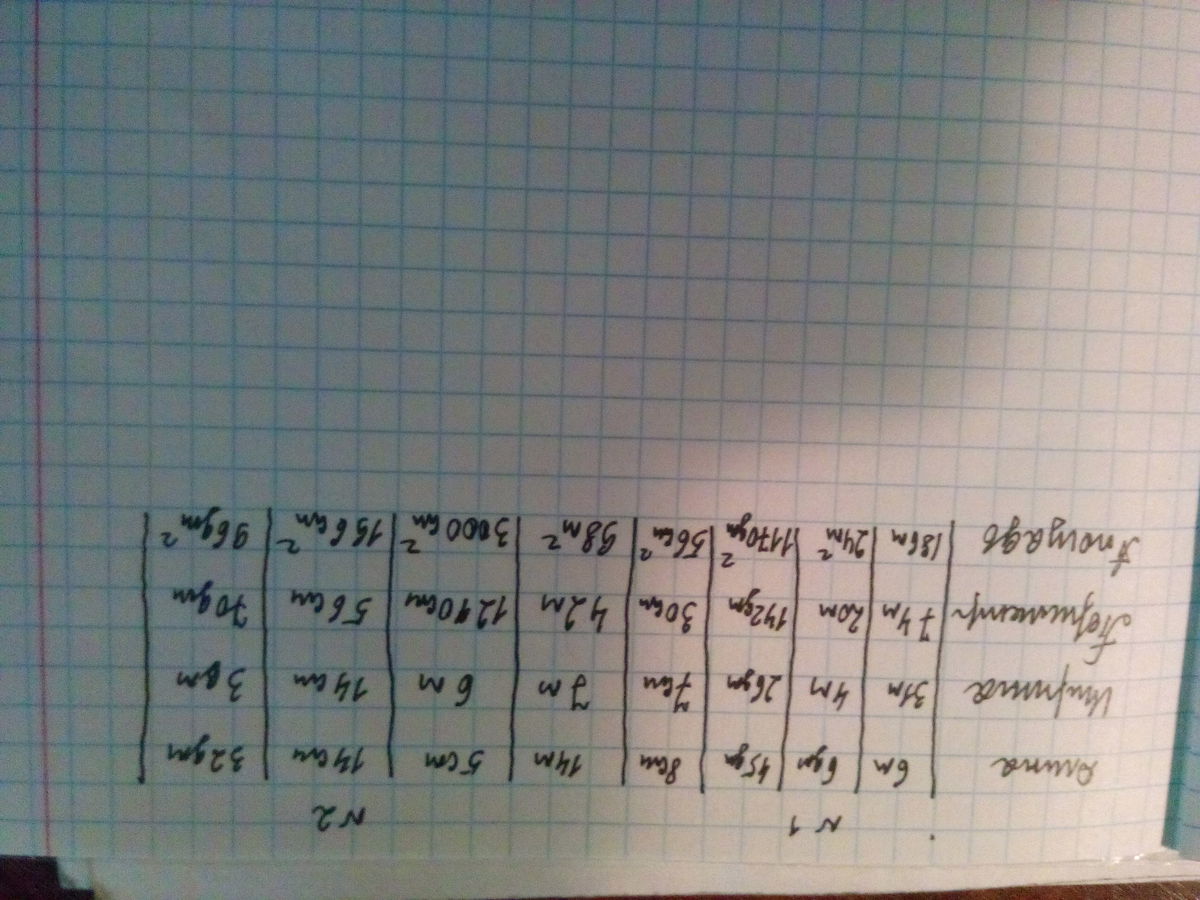 N 1 N 2
Длина | 6м | 6дм | 45дм | 8см | 14м | 5см | 14см | 32дм |
Ширина | 31м | 4м | 26дм | 7см | 7м | 6м | 14см | 3дм |
Периметр | 74м | 20м | 142дм | 30см | 42м | 1210см | 56см | 70дм |
Площадь | 186м | 24м² | 1170дм² | 56см² | 98м² | 3000см² | 156см² | 96дм² |